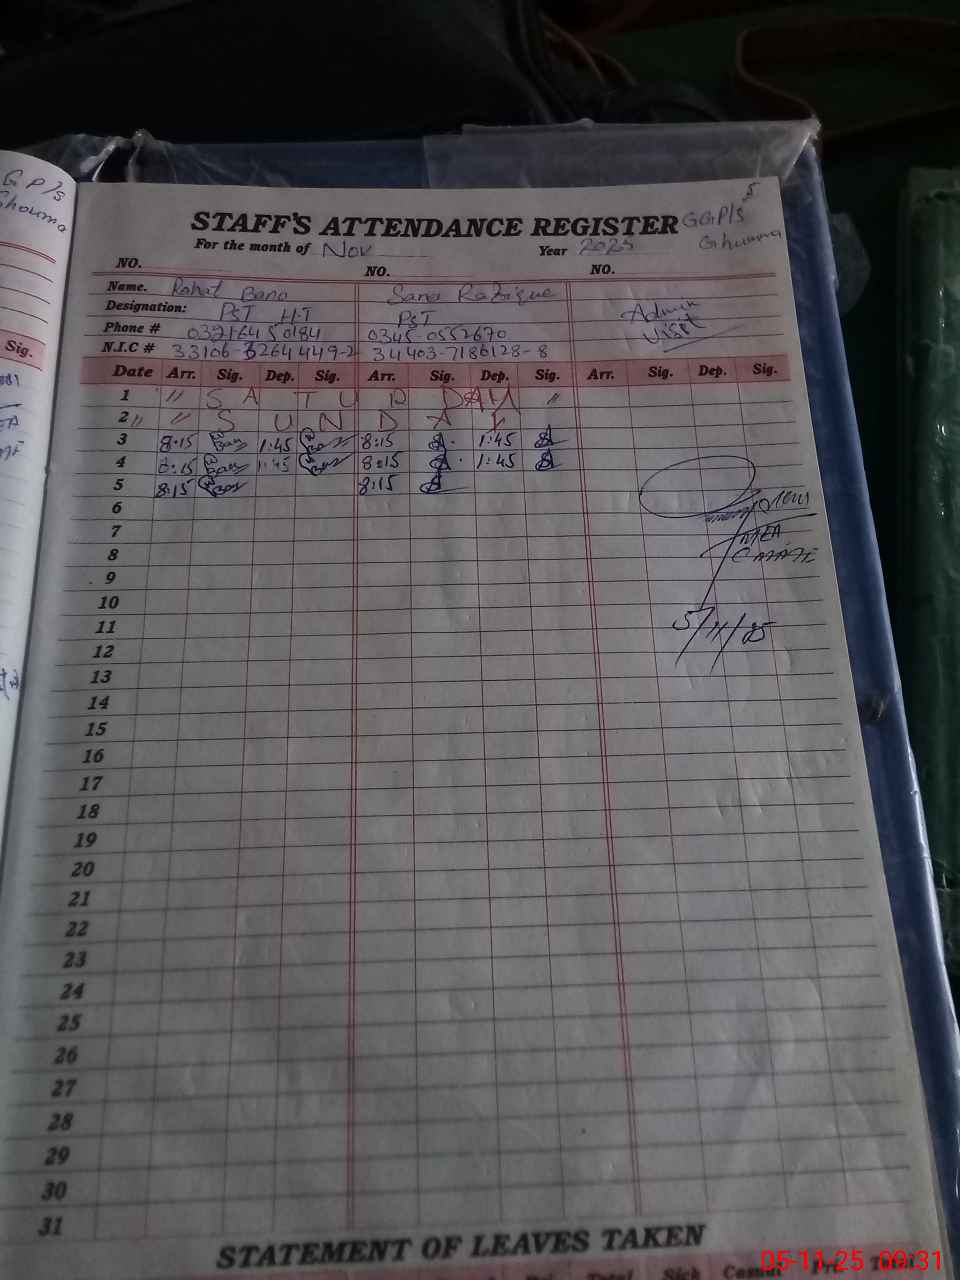 G P/s
Ghouma
5
STAFF'S ATTENDANCE REGISTER GGP/S
For the month of Nov Year 2025 Ghumna
NO. NO. NO.
Name. Rahat Bano Sana Razique
Designation: PST H-T PST Admin
Phone # 03216450184 0345-0552670 Visit
N.I.C # 33106-3264449-2 34403-7186128-8
Sig. Date Arr. Sig. Dep. Sig. Arr. Sig. Dep. Sig. Arr. Sig. Dep. Sig.
1 " S A T U R D A Y "
2 " " S U N D A Y
3 8:15 1:45 8:15 1:45
4 8:15 1:45 8:15 1:45
5 8:15 8:15
6
7
8
9
10
11 5/11/25
12
13
14
15
16
17
18
19
20
21
22
23
24
25
26
27
28
29
30
31
STATEMENT OF LEAVES TAKEN
Total Sick Casual Pri. Total
05-11-25 09:31